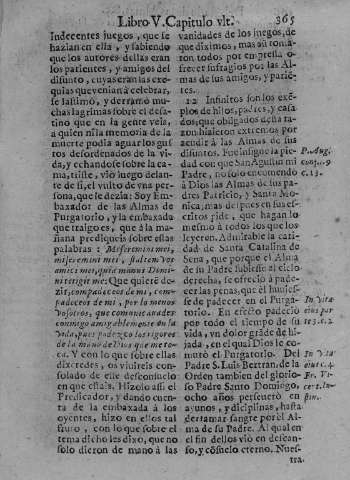 Libro V. Capitulo vlt. 365
Indecentes juegos, que se
hazian en ella, y sabiendo
que los autores dellas eran
los parientes, y amigos del
difunto, cuyas eran las exe-
quias que venian à celebrar,
se lastimò, y derramò mu-
chas lagrimas sobre el desa-
tino que en la gente veia,
a quien ni la memoria de la
muerte podia aguar los gus
tos desordenados de la vi-
da, y echandose sobre la ca-
ma, triste, viò luego delan-
te de si, el vulto de vna per-
sona, que le dezia: Soy Em-
baxador de las Almas de
Purgatorio, y la embaxada
que traigo es, que à la ma-
ñana prediqueis sobre estas
palabras: Miseremini mei,
miseremini mei, saltem vos
amici mei, quia manus Domi-
ni tetigit me: Que quiere de-
zir, compadeceos de mi, com-
padeceos de mi, por lo menos
vosotros, que comunicavades
conmigo amigablemente en la
vida, pues padezco los rigores
de la mano de Dios que me to-
ca. Y con lo que sobre ellas
dixeredes, os vivireis con-
solado de esse desconsuelo
en que estais. Hizolo assi el
Predicador, y dando cuen-
ta de la embaxada à los
oyentes, hizo en ellos tal
fruto, con lo que sobre el
tema dicho les dixo, que no
solo dieron de mano à las
vanidades de los juegos, de
que diximos, mas aun toma-
ron todos por empressa o-
frecer sufragios por las Al-
mas de sus amigos, y parie-
tes.
12 Infinitos son los exẽ-
plos de hijos, padres, y casa-
dos, que obligados desta ra-
zon hizieron extremos por
acudir à las Almas de sus
difuntos. Fue insigne la pie-
dad con que San Agustin mi
Padre, no solo encomendò
à Dios las Almas de sus pa-
dres Patricio, y Santa Mo-
nica, mas de pies en sus es-
critos pide, que hagan lo
mesmo à todos los que los
leyeren. Admirable la cari-
dad de Santa Catalina de
Sena, que porque el Alma
de su Padre subiesse al cielo
derecha, se ofreciò à pade-
cer las penas, que èl huuies-
se de padecer en el Purga-
torio. En efecto padeciò
por todo el tiempo de su
vida, vn dolor grãde de hi-
jada, en el qual Dios le co-
mutò el Purgatorio. Del
Padre S. Luis Bertran, de la
Orden tambien del glorio-
so Padre Santo Domingo,
ocho años perseverò en
ayunos, y diciplinas, hasta
derramar sangre por el Al-
ma de su Padre. Al qual en
el fin dellos viò en descan-
so, y cõsuelo eterno. Nues-
tra.
P. Aug.
conf. 9
c. 13.
In vita
eius par
te 3. c. 2.
In vita
eius c. 4.